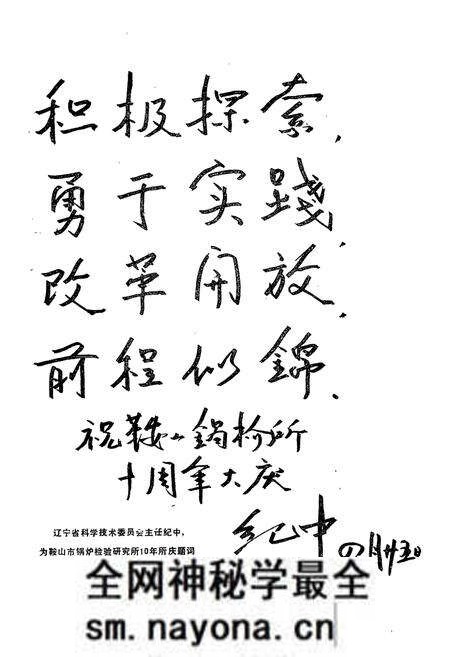 积极探索，
勇于实践，
改革开放，
前程似锦．
祝鞍山锅检所
十周年大庆
纪中 四月廿五日
辽宁省科学技术委员会主任纪中，
为鞍山市锅炉检验研究所10年所庆题词
全网神秘学最全
sm.nayona.cn